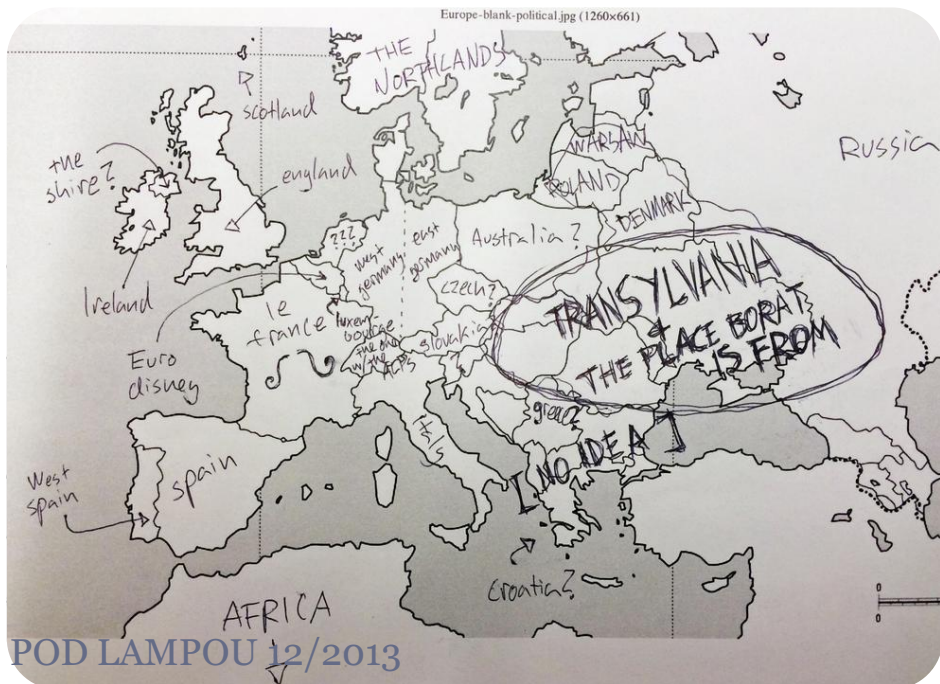 Europe-blank-political.jpg (1260×661)
THE
NORTHLANDS
scotland
the
shire?
england
Ireland
WARSAW
POLAND
DENMARK
Russia
???
west
germany
east
germany
Australia?
czech?
slovakia
le
france
luxem
bourge
the one
w/ the
ALPS
Euro
disney
TRANSYLVANIA
+
THE PLACE BORAT
IS FROM
Italy
greece?
[NO IDEA]
West
spain
spain
Croatia?
AFRICA
0
0
POD LAMPOU 12/2013